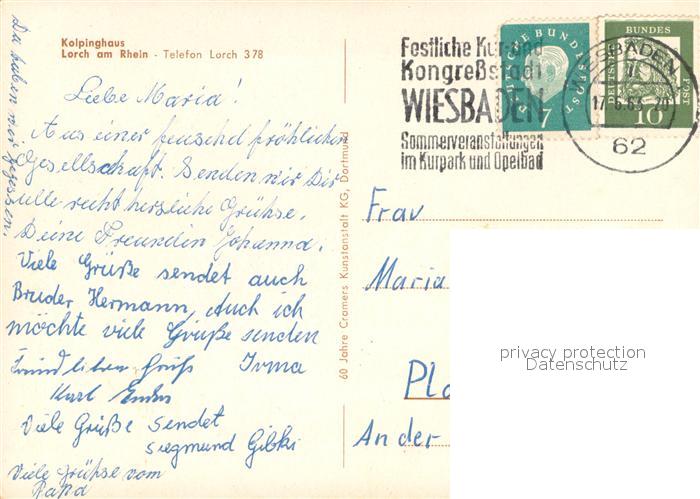 Kolpinghaus
Lorch am Rhein - Telefon Lorch 378
Da haben wir gegessen.
Liebe Maria!
Aus einer feuschd fröhlichen
Gesellschaft. Senden wir Dir
alle recht herzliche Grühse.
Deine Freundin Johanna.
Viele Grüße sendet auch
Bruder Hermann, Auch ich
möchte viele Grüße senden
Irma
Karl
Viele Grüße sendet
Siegmund Gibki
Viele Grühse vom
Papa
60 Jahre Cramers Kunstanstalt KG, Dortmund
Festliche Kur-und
Kongreßstadt
WIESBADEN
Sommerveranstaltungen
im Kurpark und Opelbad
DEUTSCHE BUNDESPOST
7
DEUTSCHE BUNDESPOST
10
WIESBADEN
17.6.63-20
62
Frau
Maria
An der
privacy protection
Datenschutz